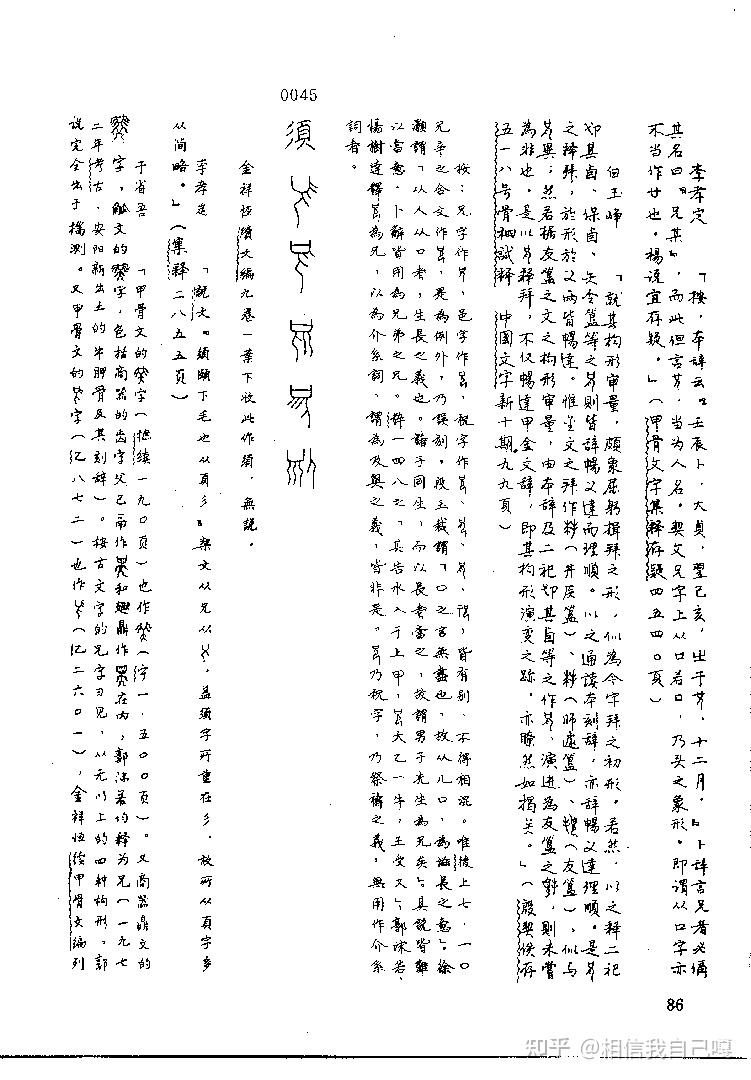 李孝定 「按,本辭云:『壬辰卜,大貞,翌己亥,㞢于兄,十二月。』卜辭言兄者必偁
其名曰『兄某』,而此但言兄,当为人名。契文兄字上从口若口,乃头之象形。即谓从口字亦
不当作廿也。楊说宜存疑。」(甲骨文字集释存疑四五四〇頁)
白玉崢 「就其构形审量,頗象屈躬揖拜之形,似为今字拜之初形。若然,以之释二祀
邲其卣、保卣、矢令簋等之則皆辞暢义達而理順。以之通读本刻辞,亦辞暢义達理順。是
之释拜,於形於义两皆暢達。惟金文之拜作(井灰簋)、(师遽簋)、(友簋),似与
異;然若据友簋之文之构形审量,由本辞及二祀邲其卣等之作,演进為友簋之,則未嘗
為非也。是以释拜,不仅暢達甲金文辞,即其构形演变之跡,亦瞭然如揭矣。」(殷契佚存
五一八号骨柶試释 中國文字新十期九九頁)
按:兄字作,邑字作,祝字作、、、諸,皆有别,不得相混。唯後上七·一〇
兄辛之合文作,是為例外,乃誤刻。段玉裁謂「口之言無盡也,故从儿口,為滋長之意」;徐
灝謂「从人从口者,生長之義也。諸子同生,而以長者当之,故謂男子先生為兄矣」;其說皆難
以当意。卜辭皆用為兄弟之兄。 一四八之「其告水入于上甲,大乙一牛,王受又」;郭沫若、
楊樹達釋為兄,以為介系詞,謂為及與之義,皆非是。乃祝字,乃祭禱之義,無用作介系
詞者。
0045
須
金祥恆續文編九卷一葉下收此作須,無說。
李孝定 「說文:『須頤下毛也从頁彡。』契文从兄从,益須字所重在彡,故所从頁字多
从简略。」(集释二八五五頁)
于省吾 「甲骨文的字(摭续一九〇頁)也作(字一·五〇〇頁)。又商器鼎文的
字,觚文的字,包括商器的齿字父己鬲作和趩鼎作在內,郭沫若均释為兄(一九七
二年考古,安阳新出土的牛胛骨及其刻辞)。按古文字的兄字习见,从元以上的四种构形。郭
說完全出于揣測。又甲骨文的字(乙八七二)也作(乙二六〇一),金祥恆续甲骨文编列
86
知乎 @相信我自己嘎